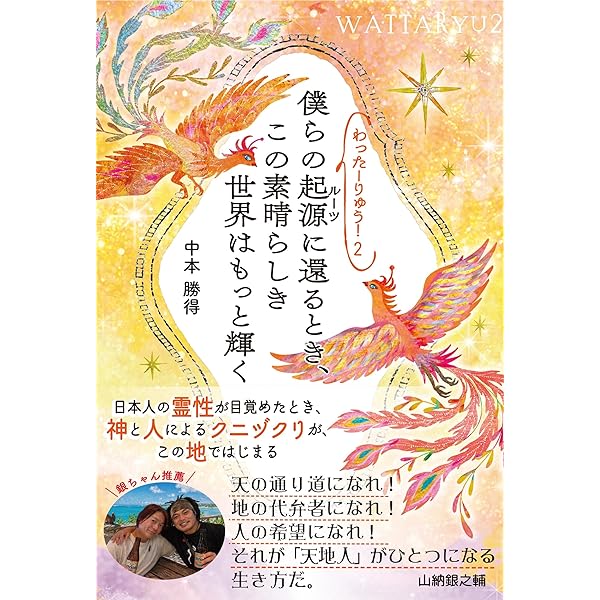 WATTARYU2
わったーりゅう!2
僕らの起源に還るとき、
ルーツ
この素晴らしき
世界はもっと輝く
中本 勝得
日本人の霊性が目覚めたとき、
神と人によるクニヅクリが、
この地ではじまる
銀ちゃん推薦
天の通り道になれ!
地の代弁者になれ!
人の希望になれ!
それが「天地人」がひとつになる
生き方だ。
山納銀之輔